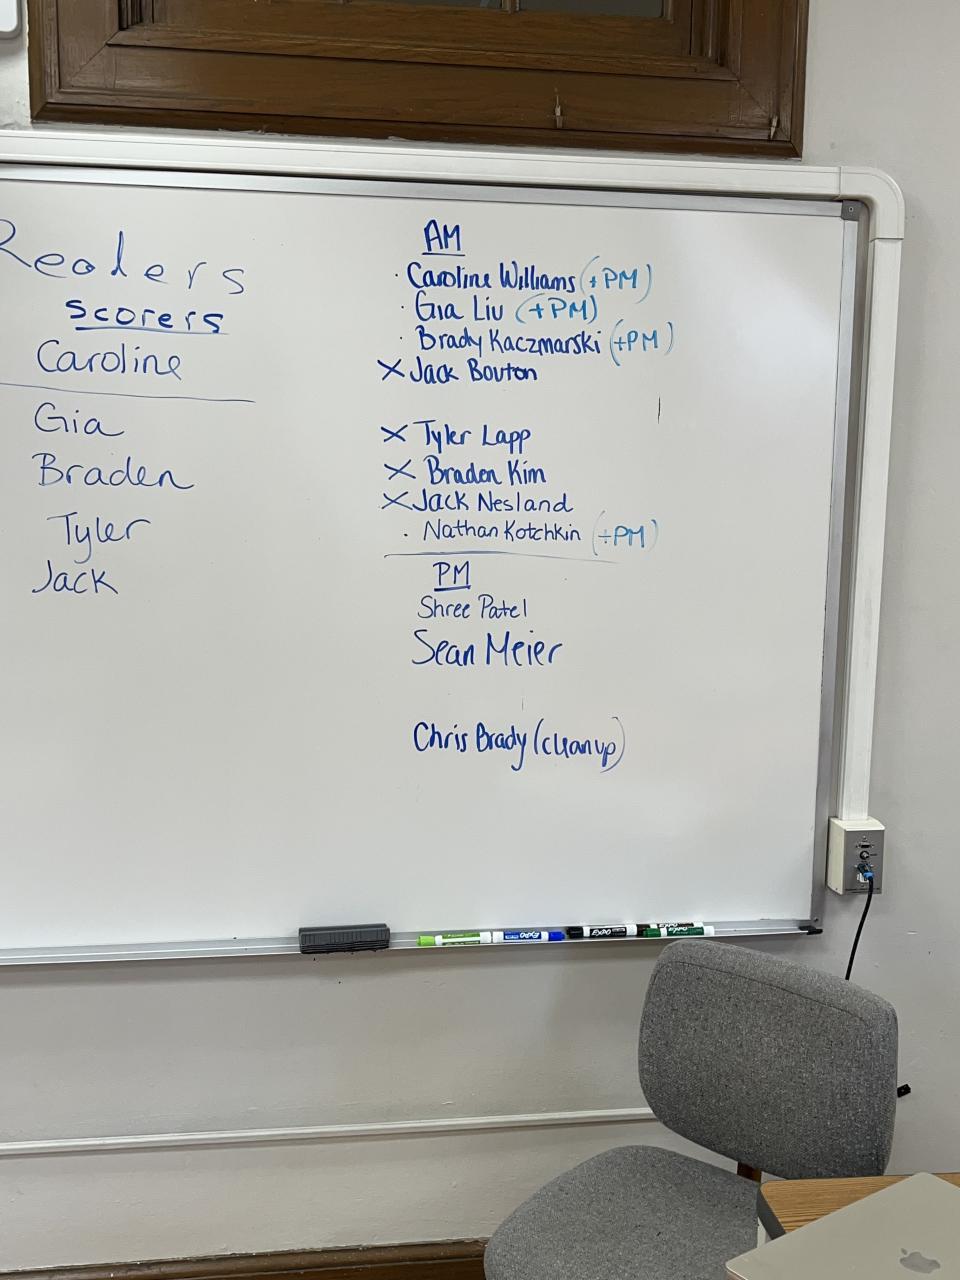 Readers
scorers
Caroline
Gia
Braden
Tyler
Jack
AM
· Caroline Williams (+PM)
· Gia Liu (+PM)
· Brady Kaczmarski (+PM)
X Jack Bouton
X Tyler Lapp
X Braden Kim
X Jack Nesland
. Nathan Kotchkin (+PM)
PM
Shree Patel
Sean Meier
Chris Brady (cleanup)
EXPO
EXPO
EXPO